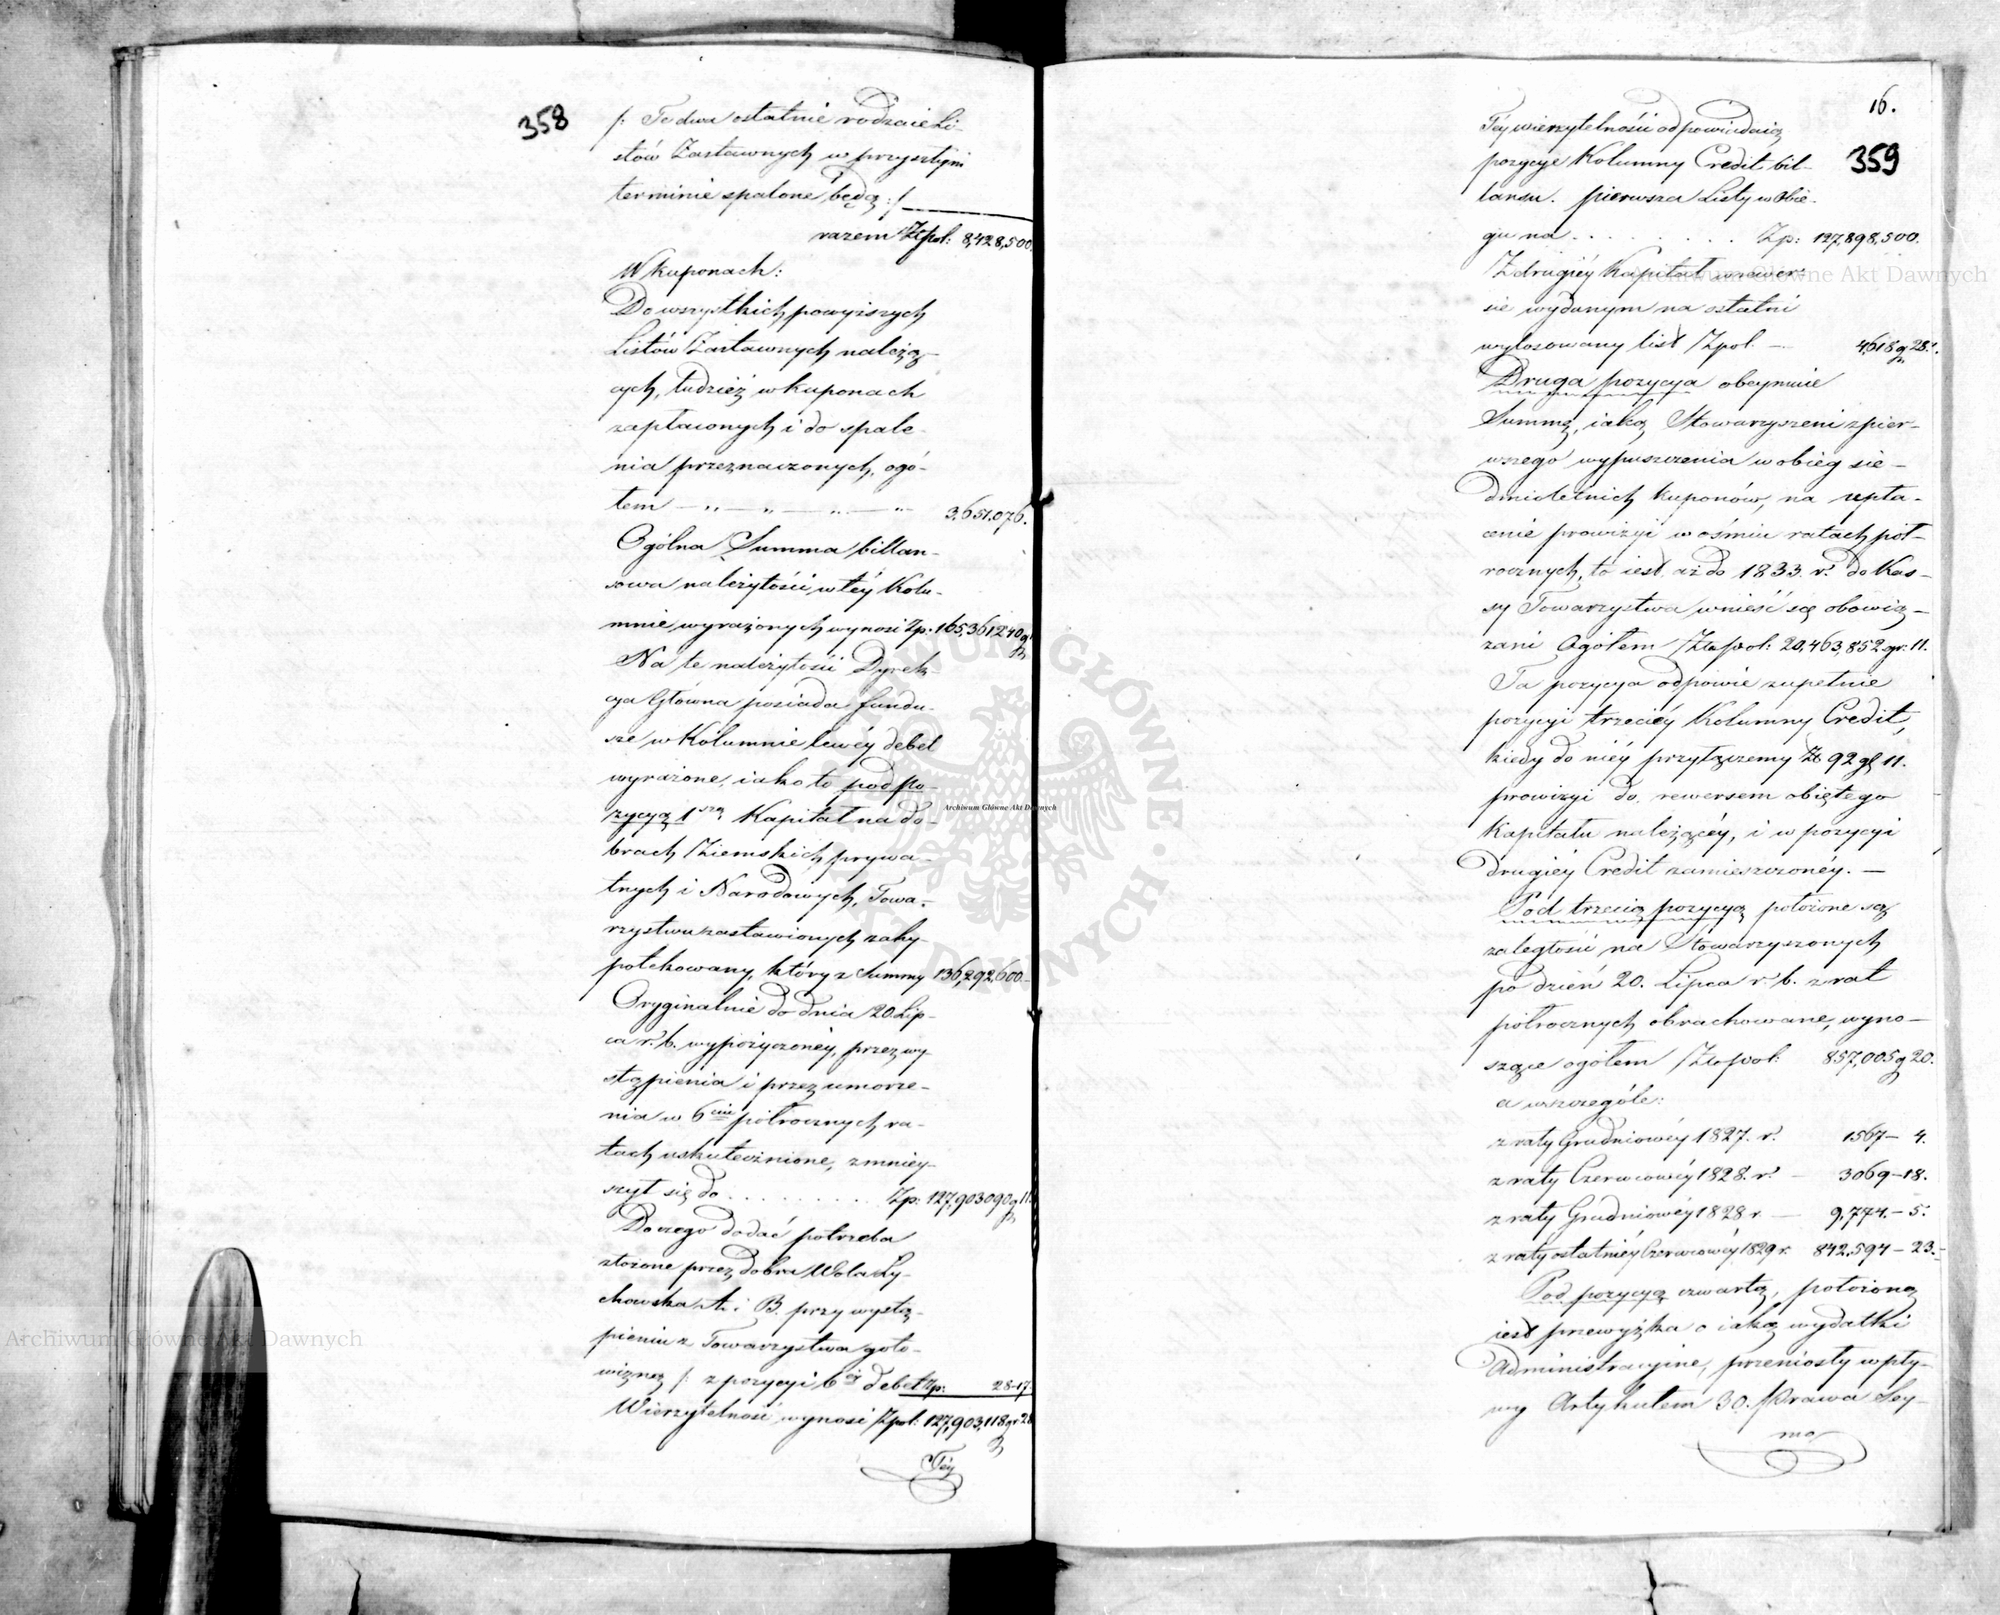 358
/: Te dwa ostatnie rodzaie Li-
stów Zastawnych w przyszłym
terminie spalone będą :/
razem Złpol: 8,428,500.
W kuponach:
Do wszystkich powyższych
Listów Zastawnych należą-
cych, tudzież w kuponach
zapłaconych i do spale-
nia przeznaczonych, ogó-
łem — „ — „ — „ — „ 3,651,076.
Ogólna Summa billan-
sowa należytości w téy Kolu-
mnie wyrażonych wynosi Zp: 165,361240 g
Na te należytości Dyrek-
cya Główna posiada fundu-
sze w Kolumnie lewéy debet
wyrażone, iako to pod po-
zycyą 1szą Kapitał na do-
brach Ziemskich prywa-
tnych i Narodowych, Towa-
rzystwu zastawionych zahy-
potekowany, który z Summy 136,292,600.
Oryginalnie do dnia 20 Lip-
ca r. b. wypożyczonéy, przez wy-
stąpienia i przez umorze-
nia w 6ciu półrocznych ra-
tach uskutecznione, zmniey-
szył się do . . . . . . . . . Zp: 127,903090 g 11
Do czego dodać potrzeba
złożone przez dobra Wola Ły-
chowska A i B. przy wystą-
pieniu z Towarzystwa goto-
wizną /: z pozycyi 6éy debet Zp: 28-17.
Wierzytelność wynosi Zpol: 127,903,118 gr 28
Téy
16.
359
Téy wierzytelności odpowiadaią
pozycye Kolumny Credit bil-
lansu. pierwsza Listy w obie-
gu na . . . . . . . . Zp: 127,898,500.
Z drugiéy Kapitał w rewer-
sie wydanym na ostatni
wylosowany list Zpol. — 4,618 g 28.
Druga pozycya obeymuie
Summę, iaką Stowarzyszeni z pier-
wszego wypuszczenia w obieg sie-
dmioletnich kuponów, na upła-
cenie prowizyi w ośmiu ratach pół-
rocznych, to iest aż do 1833 r. do Kas-
sy Towarzystwa wnieść są obowią-
zani Ogółem Złpol: 20,463,852 gr: 11.
Ta pozycya odpowie zupełnie
pozycyi trzeciéy Kolumny Credit,
kiedy do niéy przyłączemy Zł 92 g 11.
prowizyi do rewersem obiętego
Kapitału należącéy, i w pozycyi
drugiéy Credit zamieszczonéy. —
Pod trzecią pozycyą położone są
zaległości na Stowarzyszonych
po dzień 20. Lipca r. b. z rat
półrocznych obrachowane, wyno-
szące ogółem Złpol: 857,005 g 20.
a w szczególe:
z raty Grudniowéy 1827. r. 1567 — 4.
z raty Czerwcowéy 1828. r. — 3069 — 18.
z raty Grudniowéy 1828 r. — 9,774. — 5.
z raty ostatniéy Czerwcowéy 1829 r. 842,594 — 23.
Pod pozycyą czwartą, położoną
iest przewyżka o iaką wydatki
Administracyine, przeniosły wpły-
wy Artykułem 30. Prawa Sey-
mo
Archiwum Główne Akt Dawnych
Archiwum Główne Akt Dawnych
Archiwum Główne Akt Dawnych